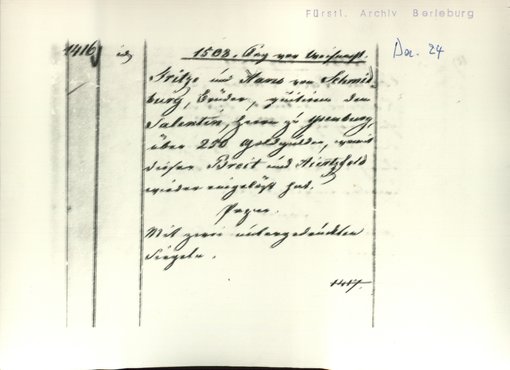 Fürstl. Archiv Berleburg
Dez. 24
1416
1508. Tag vor Weihnacht.
Fritze und Hans von Schmid
burg, Brüder, quittiren den
Salentin, Herrn zu Ysenburg,
über 250 Goldgulden, womit
dieser Breit und Hirtzfeld
wieder eingelößt hat.
Papier.
Mit zwei untergedrückten
Siegeln.
1417.